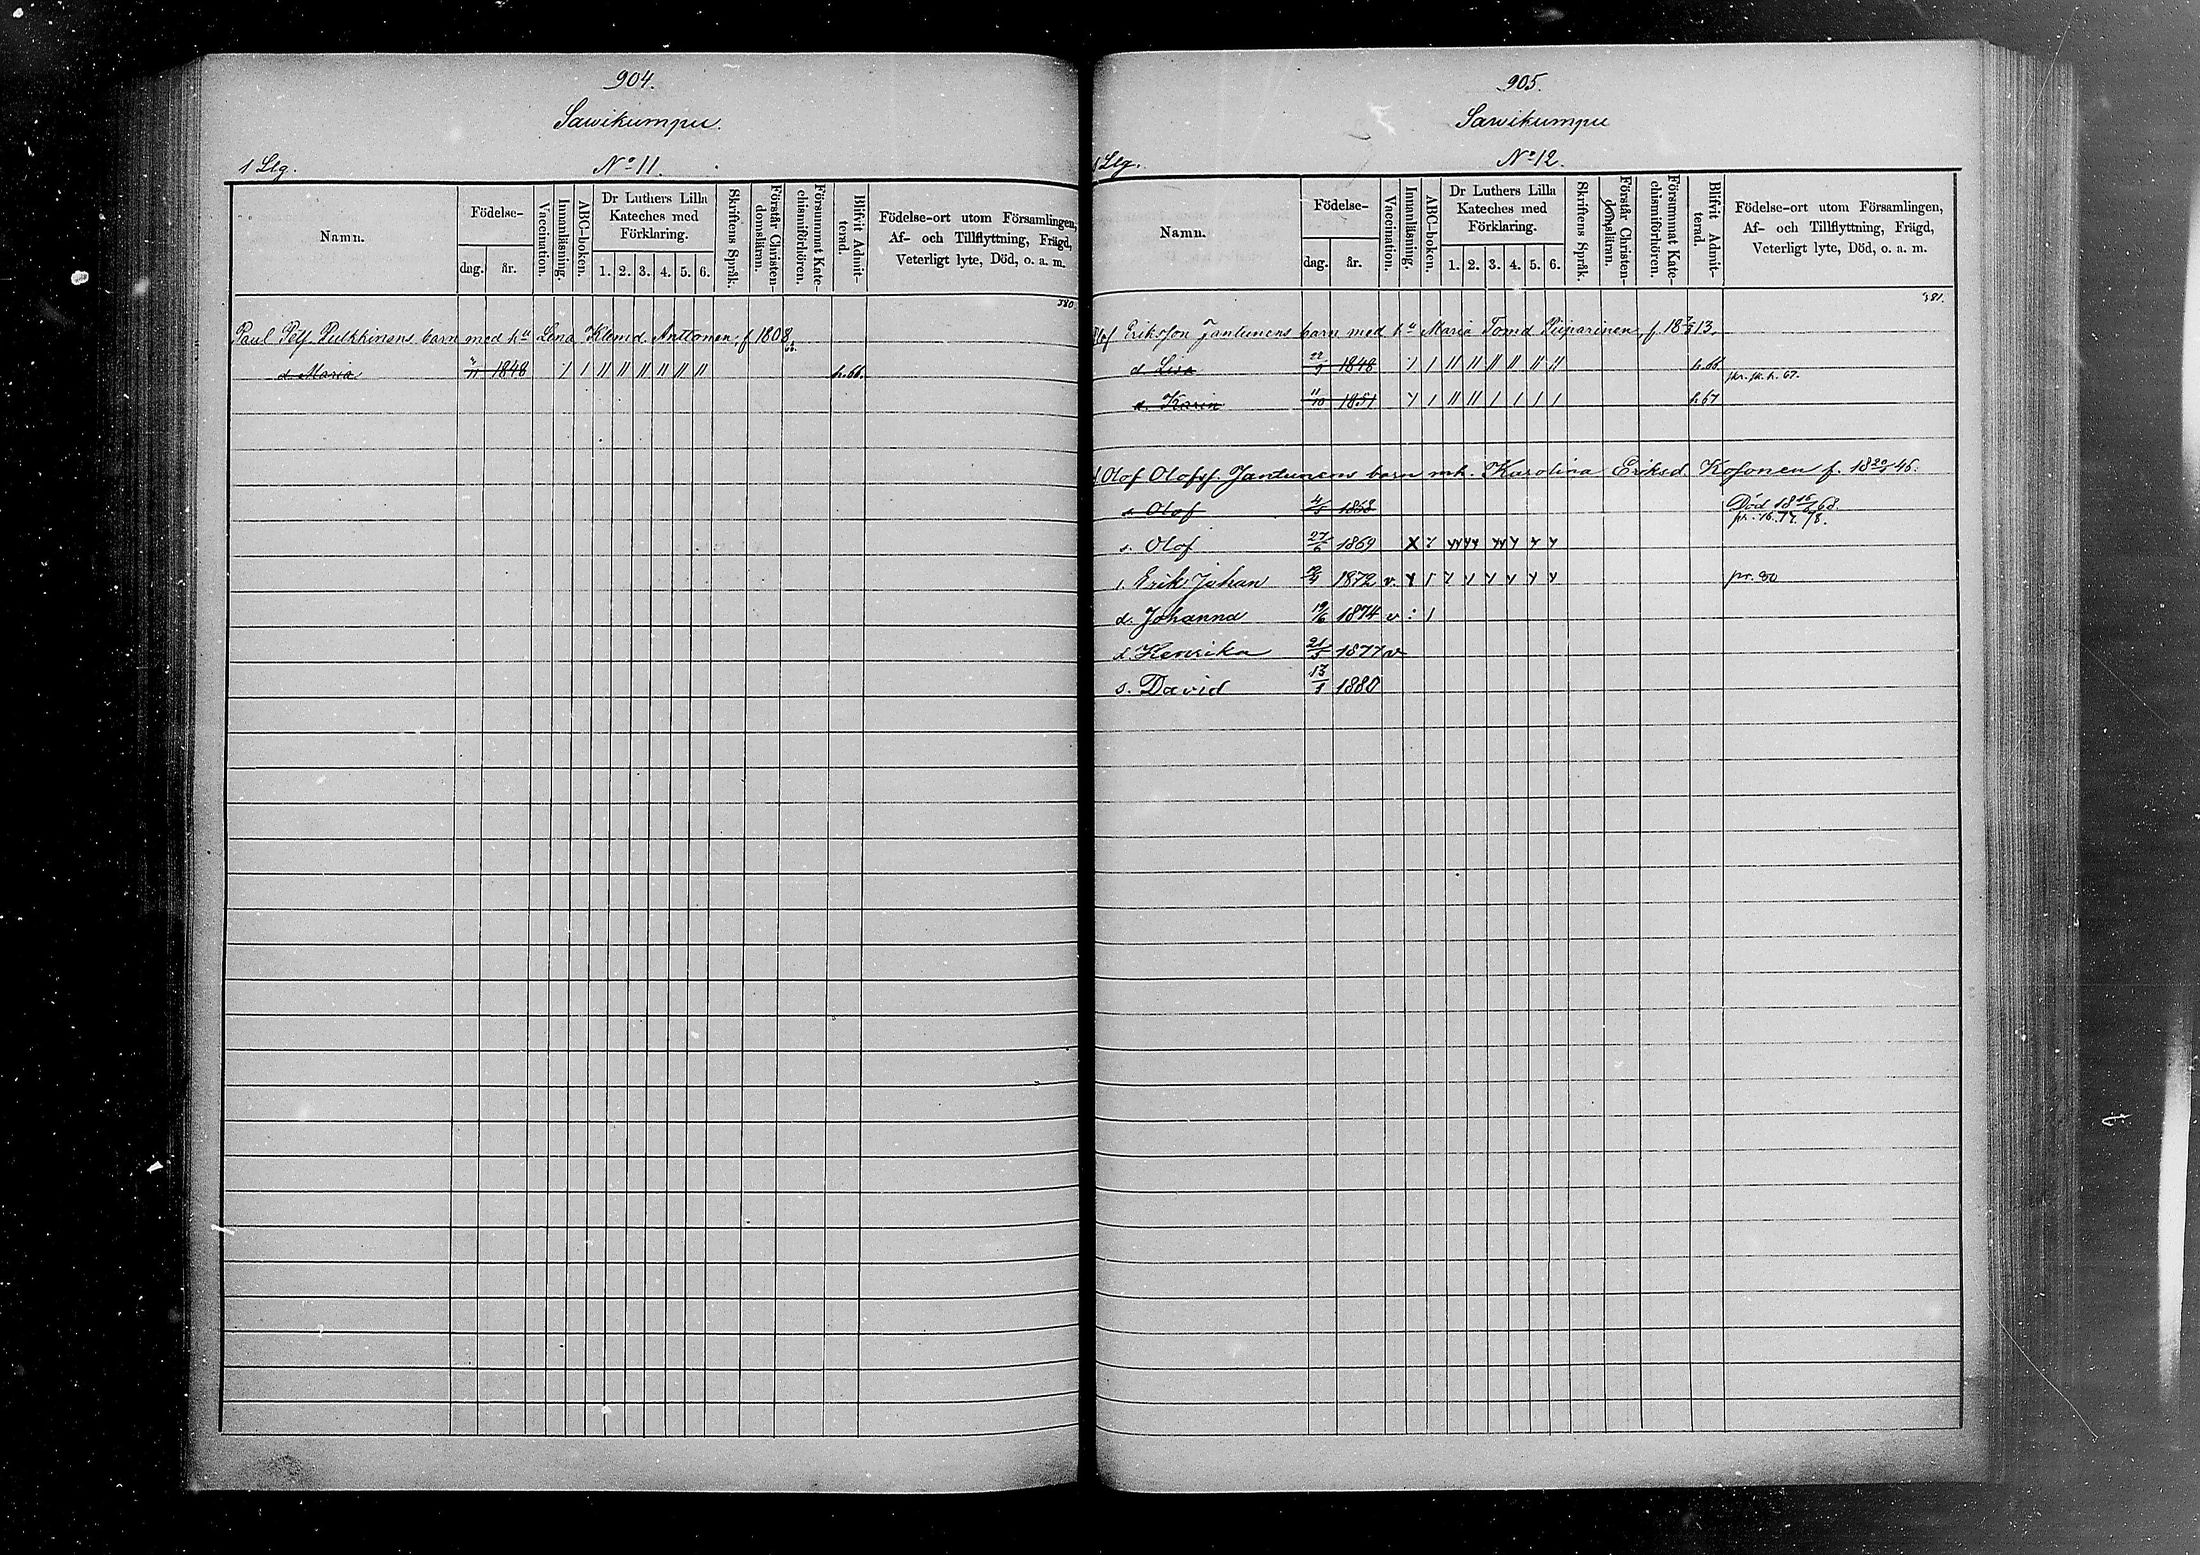 904.
Sawikumpu.
1 Llg. No 11.
Namn.
Födelse-
dag. år.
Vaccination.
Innanläsning.
ABC-boken.
Dr Luthers Lilla
Kateches med
Förklaring.
1. 2. 3. 4. 5. 6.
Skriftens Språk.
Förstår Christen-
domsläran.
Försummat Kate-
chismiförhören.
Blifvit Admit-
terad.
Födelse-ort utom Församlingen,
Af- och Tillflyttning, Frägd,
Veterligt lyte, Död, o. a. m.
380.
Paul Pulkkinens barn med hu Lena Klemd. Anttonen, f 1808
d. Maria 1848 / / // // // // // // h. 66.
905.
Sawikumpu
1 Llg. No 12.
Namn.
Födelse-
dag. år.
Vaccination.
Innanläsning.
ABC-boken.
Dr Luthers Lilla
Kateches med
Förklaring.
1. 2. 3. 4. 5. 6.
Skriftens Språk.
Förstår Christen-
domsläran.
Försummat Kate-
chismiförhören.
Blifvit Admit-
terad.
Födelse-ort utom Församlingen,
Af- och Tillflyttning, Frägd,
Veterligt lyte, Död, o. a. m.
381.
Olof Eriksson Jantunens barn med hu Maria Tomd Piiparinen, f. 18 13.
d. Lisa 22/9 1848 h. 66
h. 67.
d. Karin 11/10 1851 h. 67
Olof Olofss. Jantunens barn mh. Karolina Eriksd. Kosonen f. 18 46.
s. Olof 4/5 1868 Död 18 68.
pr. 16. 77. 78.
s. Olof 27/6 1869
s. Erik Johan 1872 v. pr. 80
d. Johanna 19/6 1874 v
d. Henrika 21/5 1877 v
s. David 13/1 1880